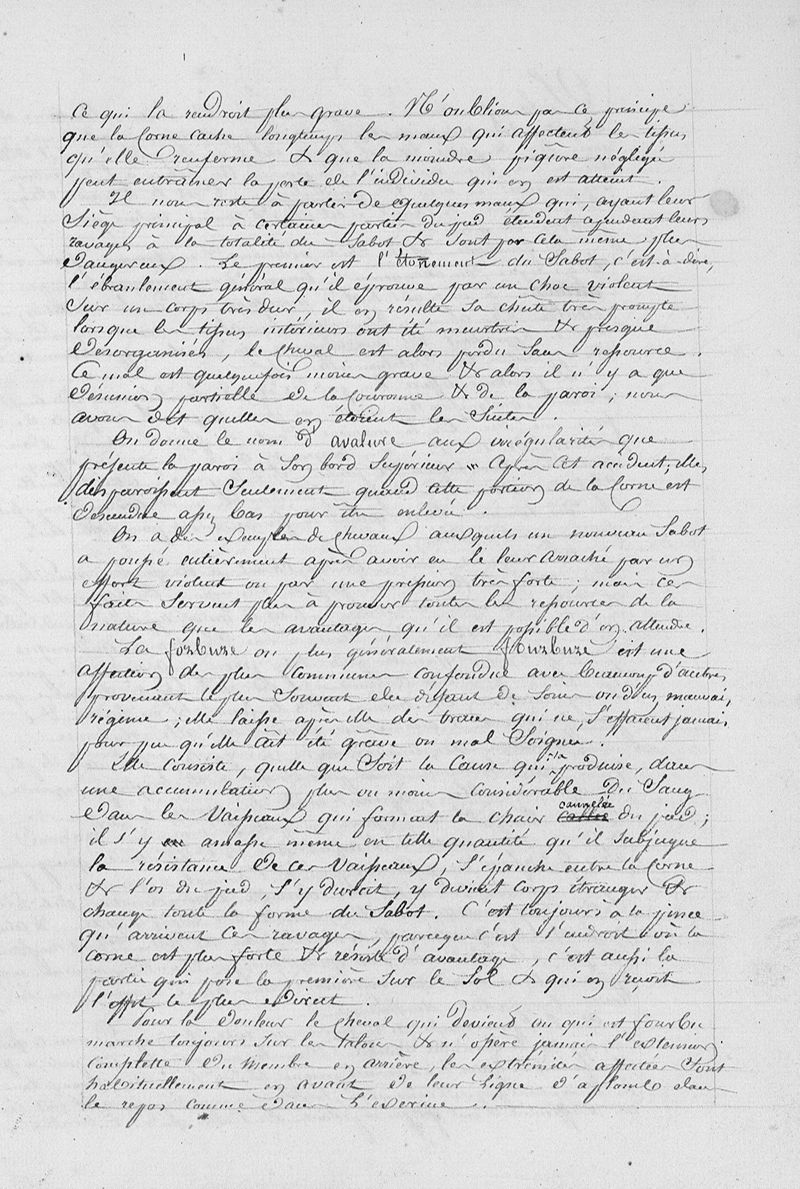 ce qui la rendroit plus grave. N'oublions pas ce principe
que la Corne cache longtemps les maux qui affectent les tissus
qu'elle renferme & que la moindre piqûre négligée
peut entraîner la perte de l'individu qui en est atteint.
Il nous reste à parler de quelques maux qui, ayant leur
Siège principal à certaines parties du pied étendent cependant leurs
ravages à la totalité du Sabot & sont par cela même plus
dangereux. Le premier est l'étonnement du Sabot, c'est à dire,
l'ébranlement général qu'il éprouve par un choc violent
sur un corps très dur, il en résulte sa chûte très prompte
lorsque les tissus intérieurs ont été meurtris & presque
désorganisés, le Cheval est alors perdu sans ressource.
Ce mal est quelquefois moins grave & alors il n'y a que
désunion partielle de la Couronne & de la paroi; nous
avons dit quelles en étoient les Suites.
On donne le nom d'avalure aux irrégularités que
présente la paroi à son bord Supérieur après cet accident; elles
disparoissent Seulement quand cette portion de la Corne est
descendue assez bas pour être enlevée.
On a des exemples de chevaux auxquels un nouveau Sabot
a poussé entièrement après avoir eu le leur arraché par un
effort violent ou par une pression très forte; mais ces
faits servent plus à prouver toutes les ressources de la
nature que les avantages qu'il est possible d'en attendre.
La forbure ou plus généralement fourbure est une
affection des plus communes confondue avec beaucoup d'autres
provenant le plus Souvent du défaut de soins ou d'un mauvais
régime; elle laisse après elle des traces qui ne s'effacent jamais
pour peu qu'elle ait été grave ou mal Soignée.
Elle consiste, quelle que Soit la Cause qui l'a produise, dans
une accumulation plus ou moins considérable du Sang
dans les Vaisseaux qui forment la chair cannelée du pied;
il s'y amasse même en telle quantité qu'il Subjugue
la résistance de ces Vaisseaux, S'épanche entre la Corne
& l'os du pied, S'y durcit, y devient corps étranger &
change toute la forme du Sabot. C'est toujours à la pince
qu'arrivent ces ravages, parceque c'est l'endroit où la
corne est plus forte & résiste d'avantage, c'est aussi la
partie qui pose la première sur le Sol & qui en reçoit
l'effort le plus direct.
Pour la douleur le cheval qui devient ou qui est fourbu
marche toujours sur les talons & n'opère jamais l'extension
complette du membre en arrière, les extrémités affectées Sont
habituellement en avant de leur ligne d'aplomb dans
le repos comme dans l'exercice.